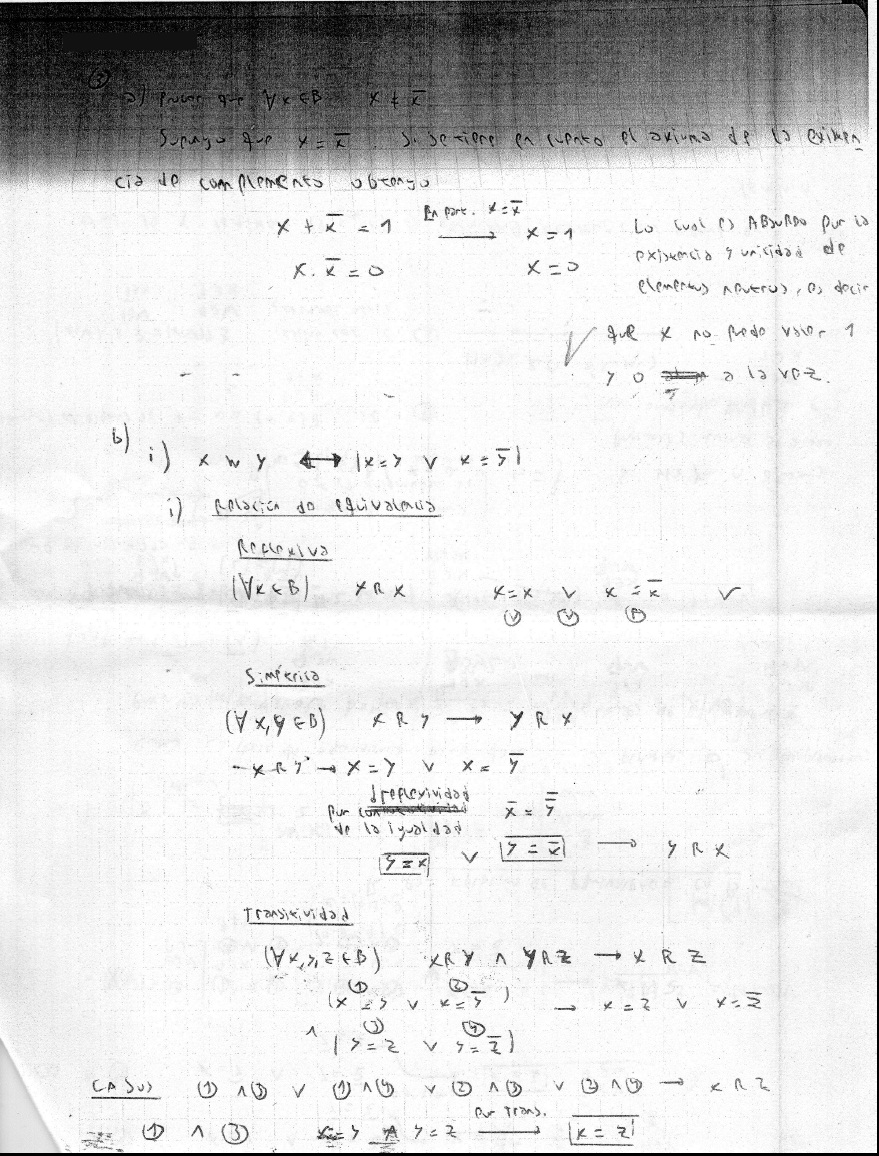 ③
a) Probar que ∀x∈B x ≠ x̅
Supongo que x = x̅ . Si se tiene en cuenta el axioma de la existen
cia de complemento obtengo
x + x̅ = 1 En part. x=x̅ ⟶ x = 1
x . x̅ = 0 x = 0
Lo cual es ABSURDO por la
existencia y unicidad de
elementos neutros, es decir
que x no puede valer 1
y 0 a la vez.
b)
i) x ~ y ⟷ (x = y ∨ x = y̅)
i) Relación de equivalencia
Reflexiva
(∀x∈B) x R x x = x ∨ x = x̅ ✓
Ⓥ Ⓥ Ⓕ
Simétrica
(∀ x,y ∈B) x R y ⟶ y R x
- x R y → x = y ∨ x = y̅
reflexividad
por
de la igualdad
x̅ = y̿
y = x ∨ y = x̅ ⟶ y R x
Transitividad
(∀ x,y,z ∈B) x R y ∧ y R z ⟶ x R z
① ②
(x = y ∨ x = y̅) ⟶ x = z ∨ x = z̅
③ ④
∧ (y = z ∨ y = z̅)
CASOS ① ∧ ③ ∨ ① ∧ ④ ∨ ② ∧ ③ ∨ ② ∧ ④ ⟶ x R z
① ∧ ③ x = y ∧ y = z Por trans. ⟶ x = z